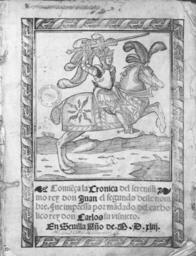 Comiẽça la Cronica del serenissi
mo rey don Juan el segundo deste nom
bre, impressa por mãdado del catho
lico rey don Carlos su visnieto.
En Sevilla Año de M.D.xliij.